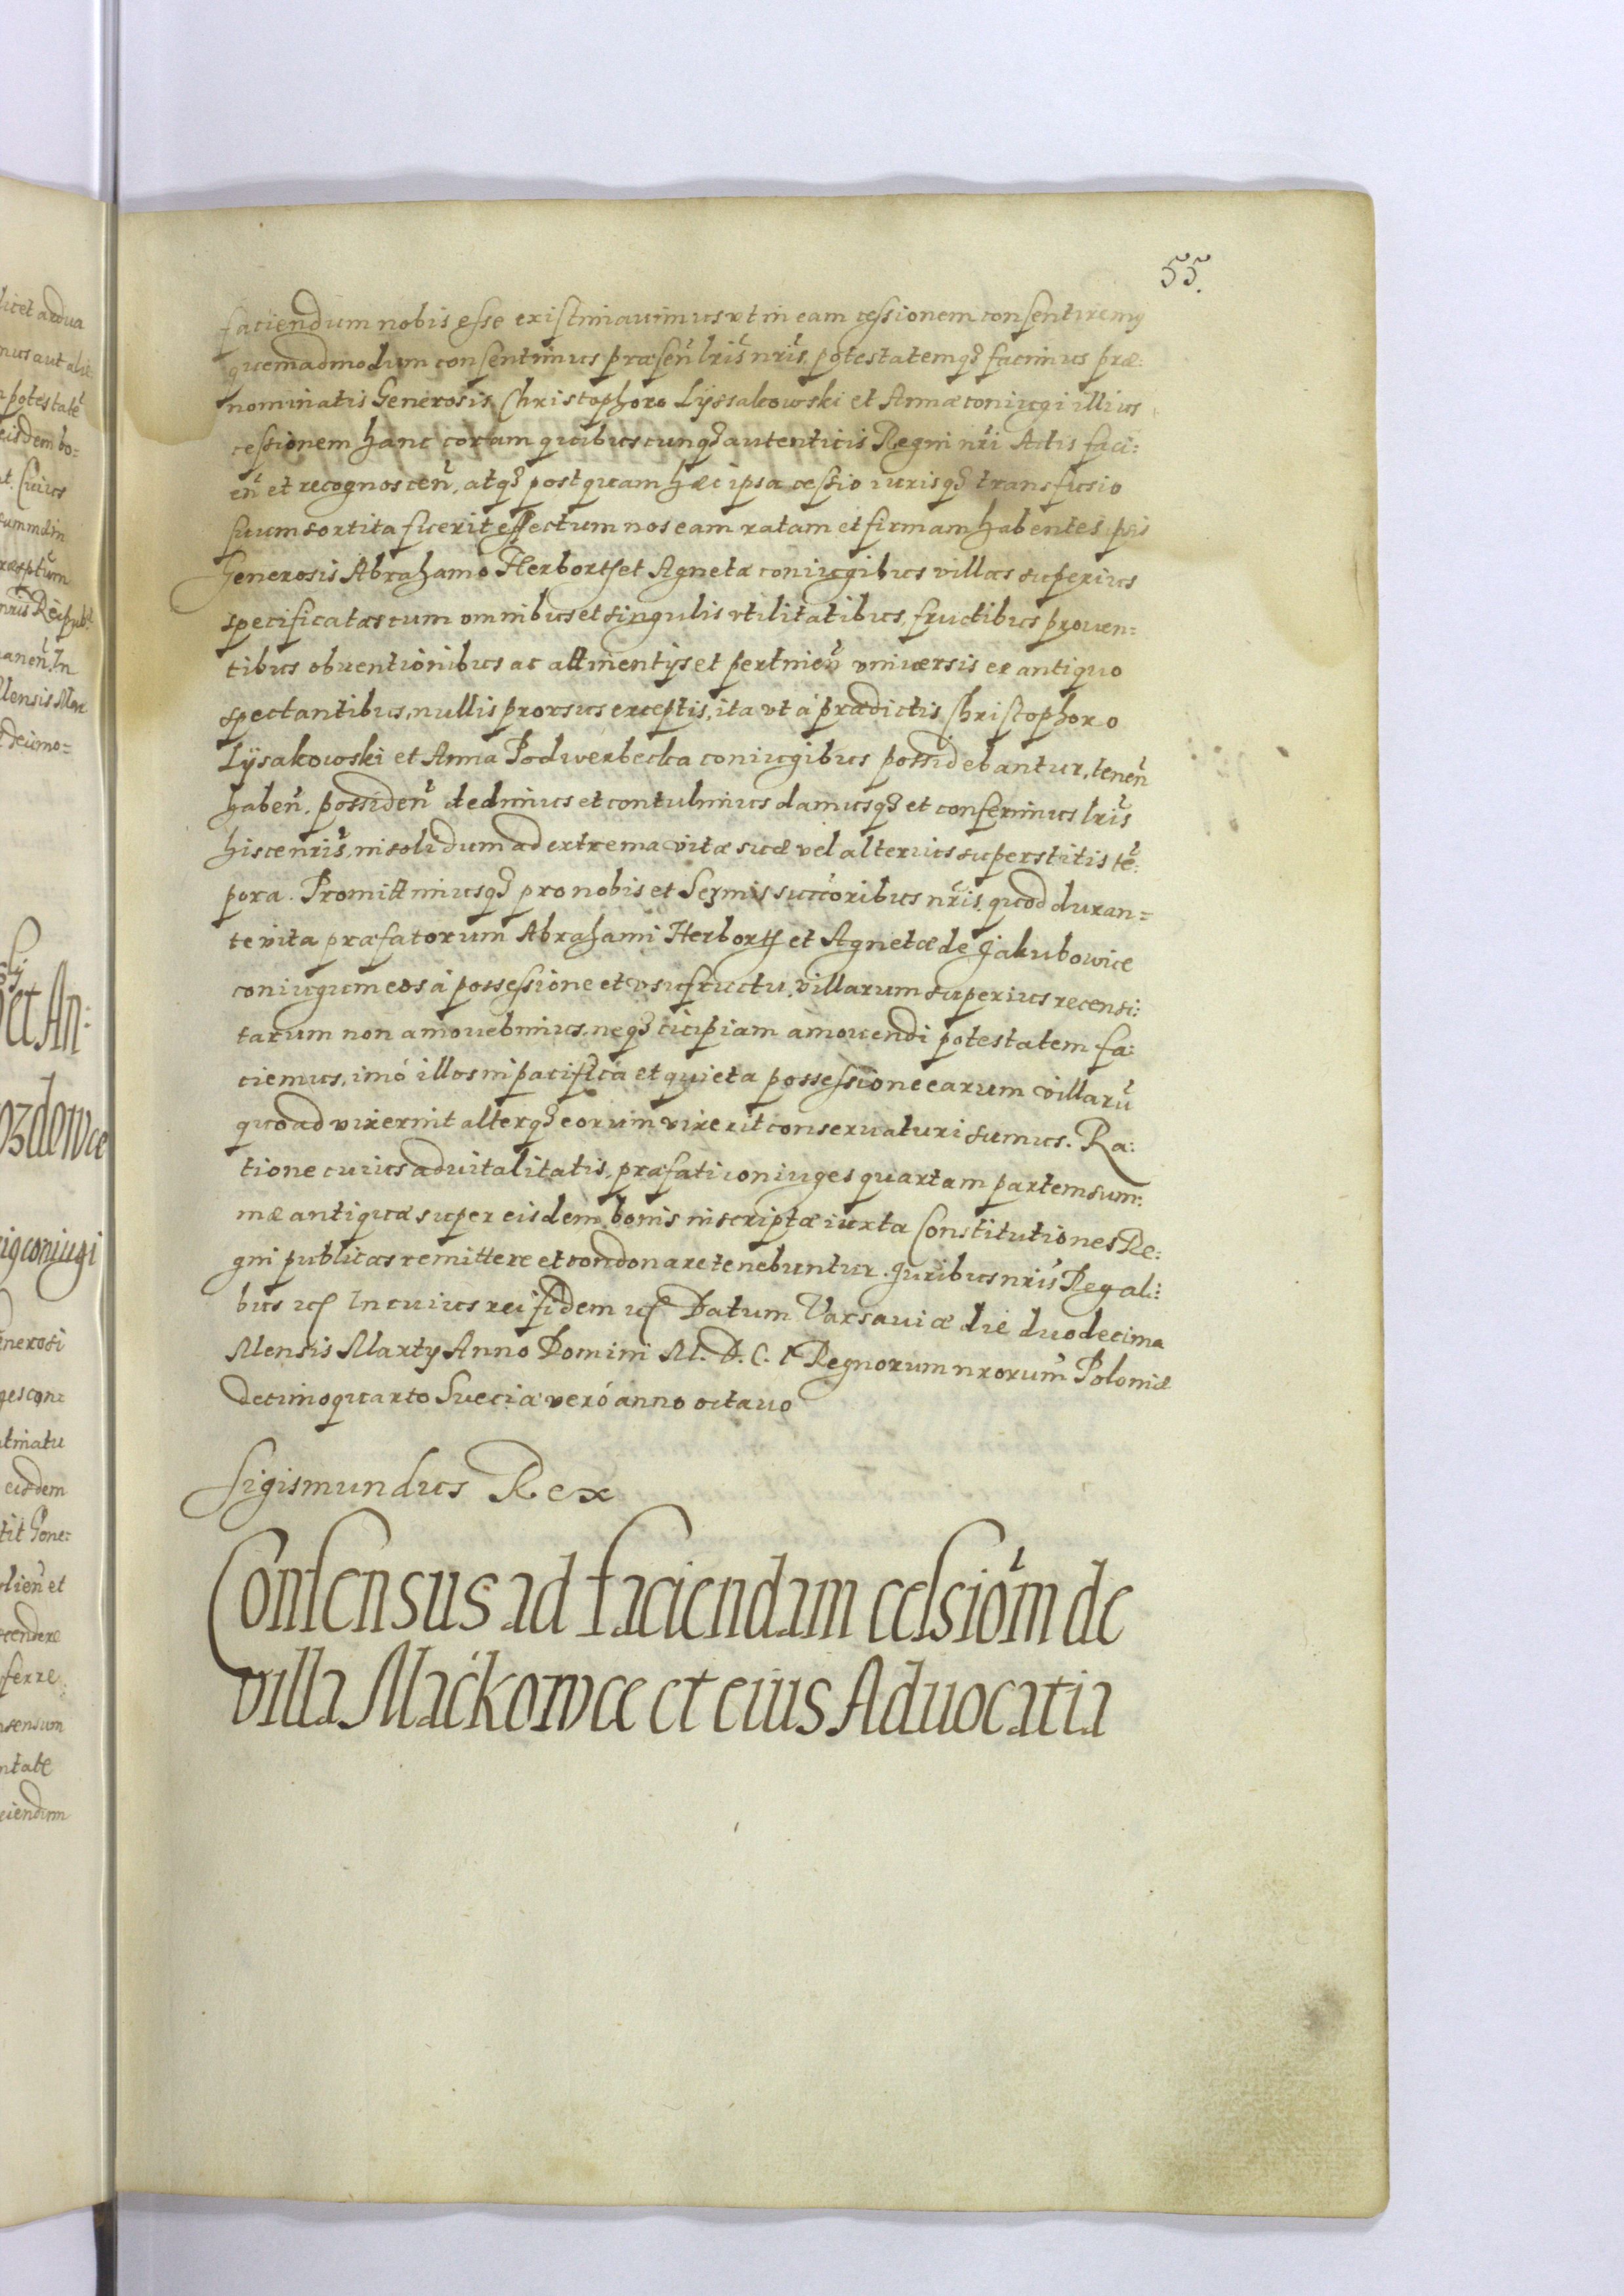 55.
faciendum nobis esse existimauimus vt in eam cessionem consentiremq
quemadmodum consentimus præsen̄ lris nris, potestatemq3 facimus præ:
nominatis Generosis Christophoro Lyssakowski et Annæ coniugi illius
cessionem hanc coram quibuscunq3 autenticis Regni nri Actis faci:
en̄ et recognoscen̄, atq3 postquam hæc ipsa cessio iurisq3 transfusio
suum sortita fuerit effectum nos eam ratam et firmam habentes, psis
Generosis Abrahamo Herborth et Agnetæ coniugibus villas superius
specificatas cum omnibus et singulis vtilitatibus, fructibus prouen=
tibus obuentionibus ac attinentijs et pertinen̄ vniuersis ex antiquo
spectantibus, nullis prorsus exceptis, ita vt à prædictis Christophoro
Lysakowski et Anna Podwerbecka coniugibus possidebantur, tenen̄
haben̄, possiden̄ dedimus et contulimus damusq3 et conferimus lris
hisce nris, in solidum ad extrema vitæ suæ vel alterius superstitis tē:
pora. Promittimusq3 pro nobis et Sermis succoribus nris, quod duran=
te vita præfatorum Abrahami Herborth et Agnetæ de Jakubowice
coniugum eos à possessione et vsufructu, villarum superius recensi:
tarum non amouebimus, neq3 cuipiam amouendi potestatem fa:
ciemus, imó illos in pacifica et quieta possessione earum villarū
quoad vixerint alterq3 eorum vixerit conseruaturi sumus. Ra:
tione cuius aduitalitatis, præfati coniuges quartam partem sum:
mæ antiquæ super eisdem bonis inscriptæ iuxta Constitutiones Re:
gni publicas remittere et condonare tenebuntur. Juribus nris Regali:
bus etc In cuius rei fidem etc Datum Varsauiæ die duodecima
Mensis Martij Anno Domini M. D. C. I Regnorum nrorum Poloniæ
decimoquarto Sueciæ veró anno octauo
Sigismundus Rex
Consensus ad faciendam cessiom̄ de
villa Maćkowice et eius Aduocatia